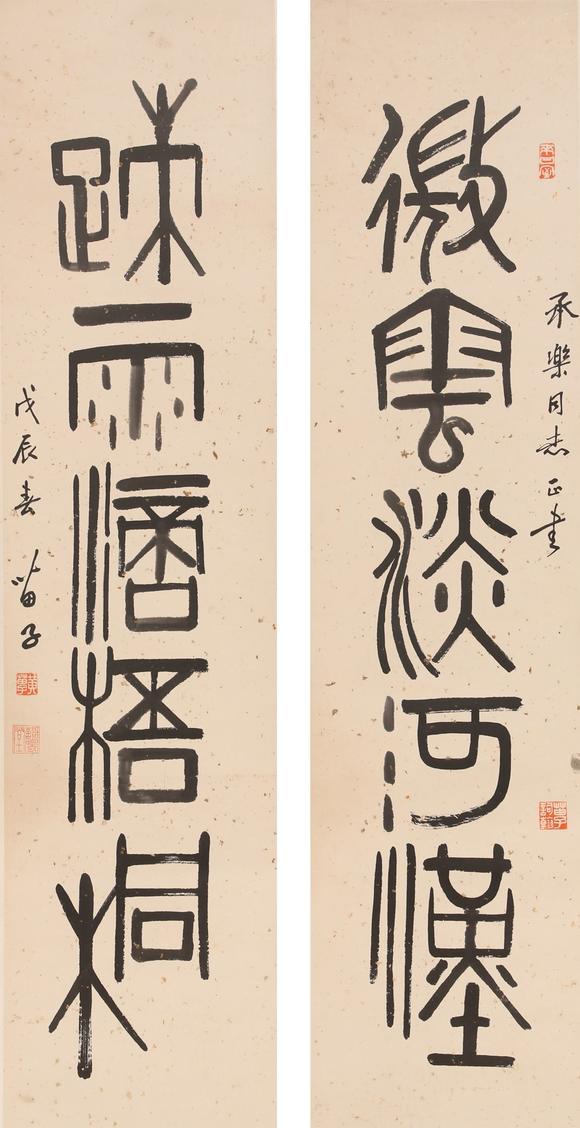 承樂同志正書
微雲淡河漢
疎雨滴梧桐
戊辰春 苗子